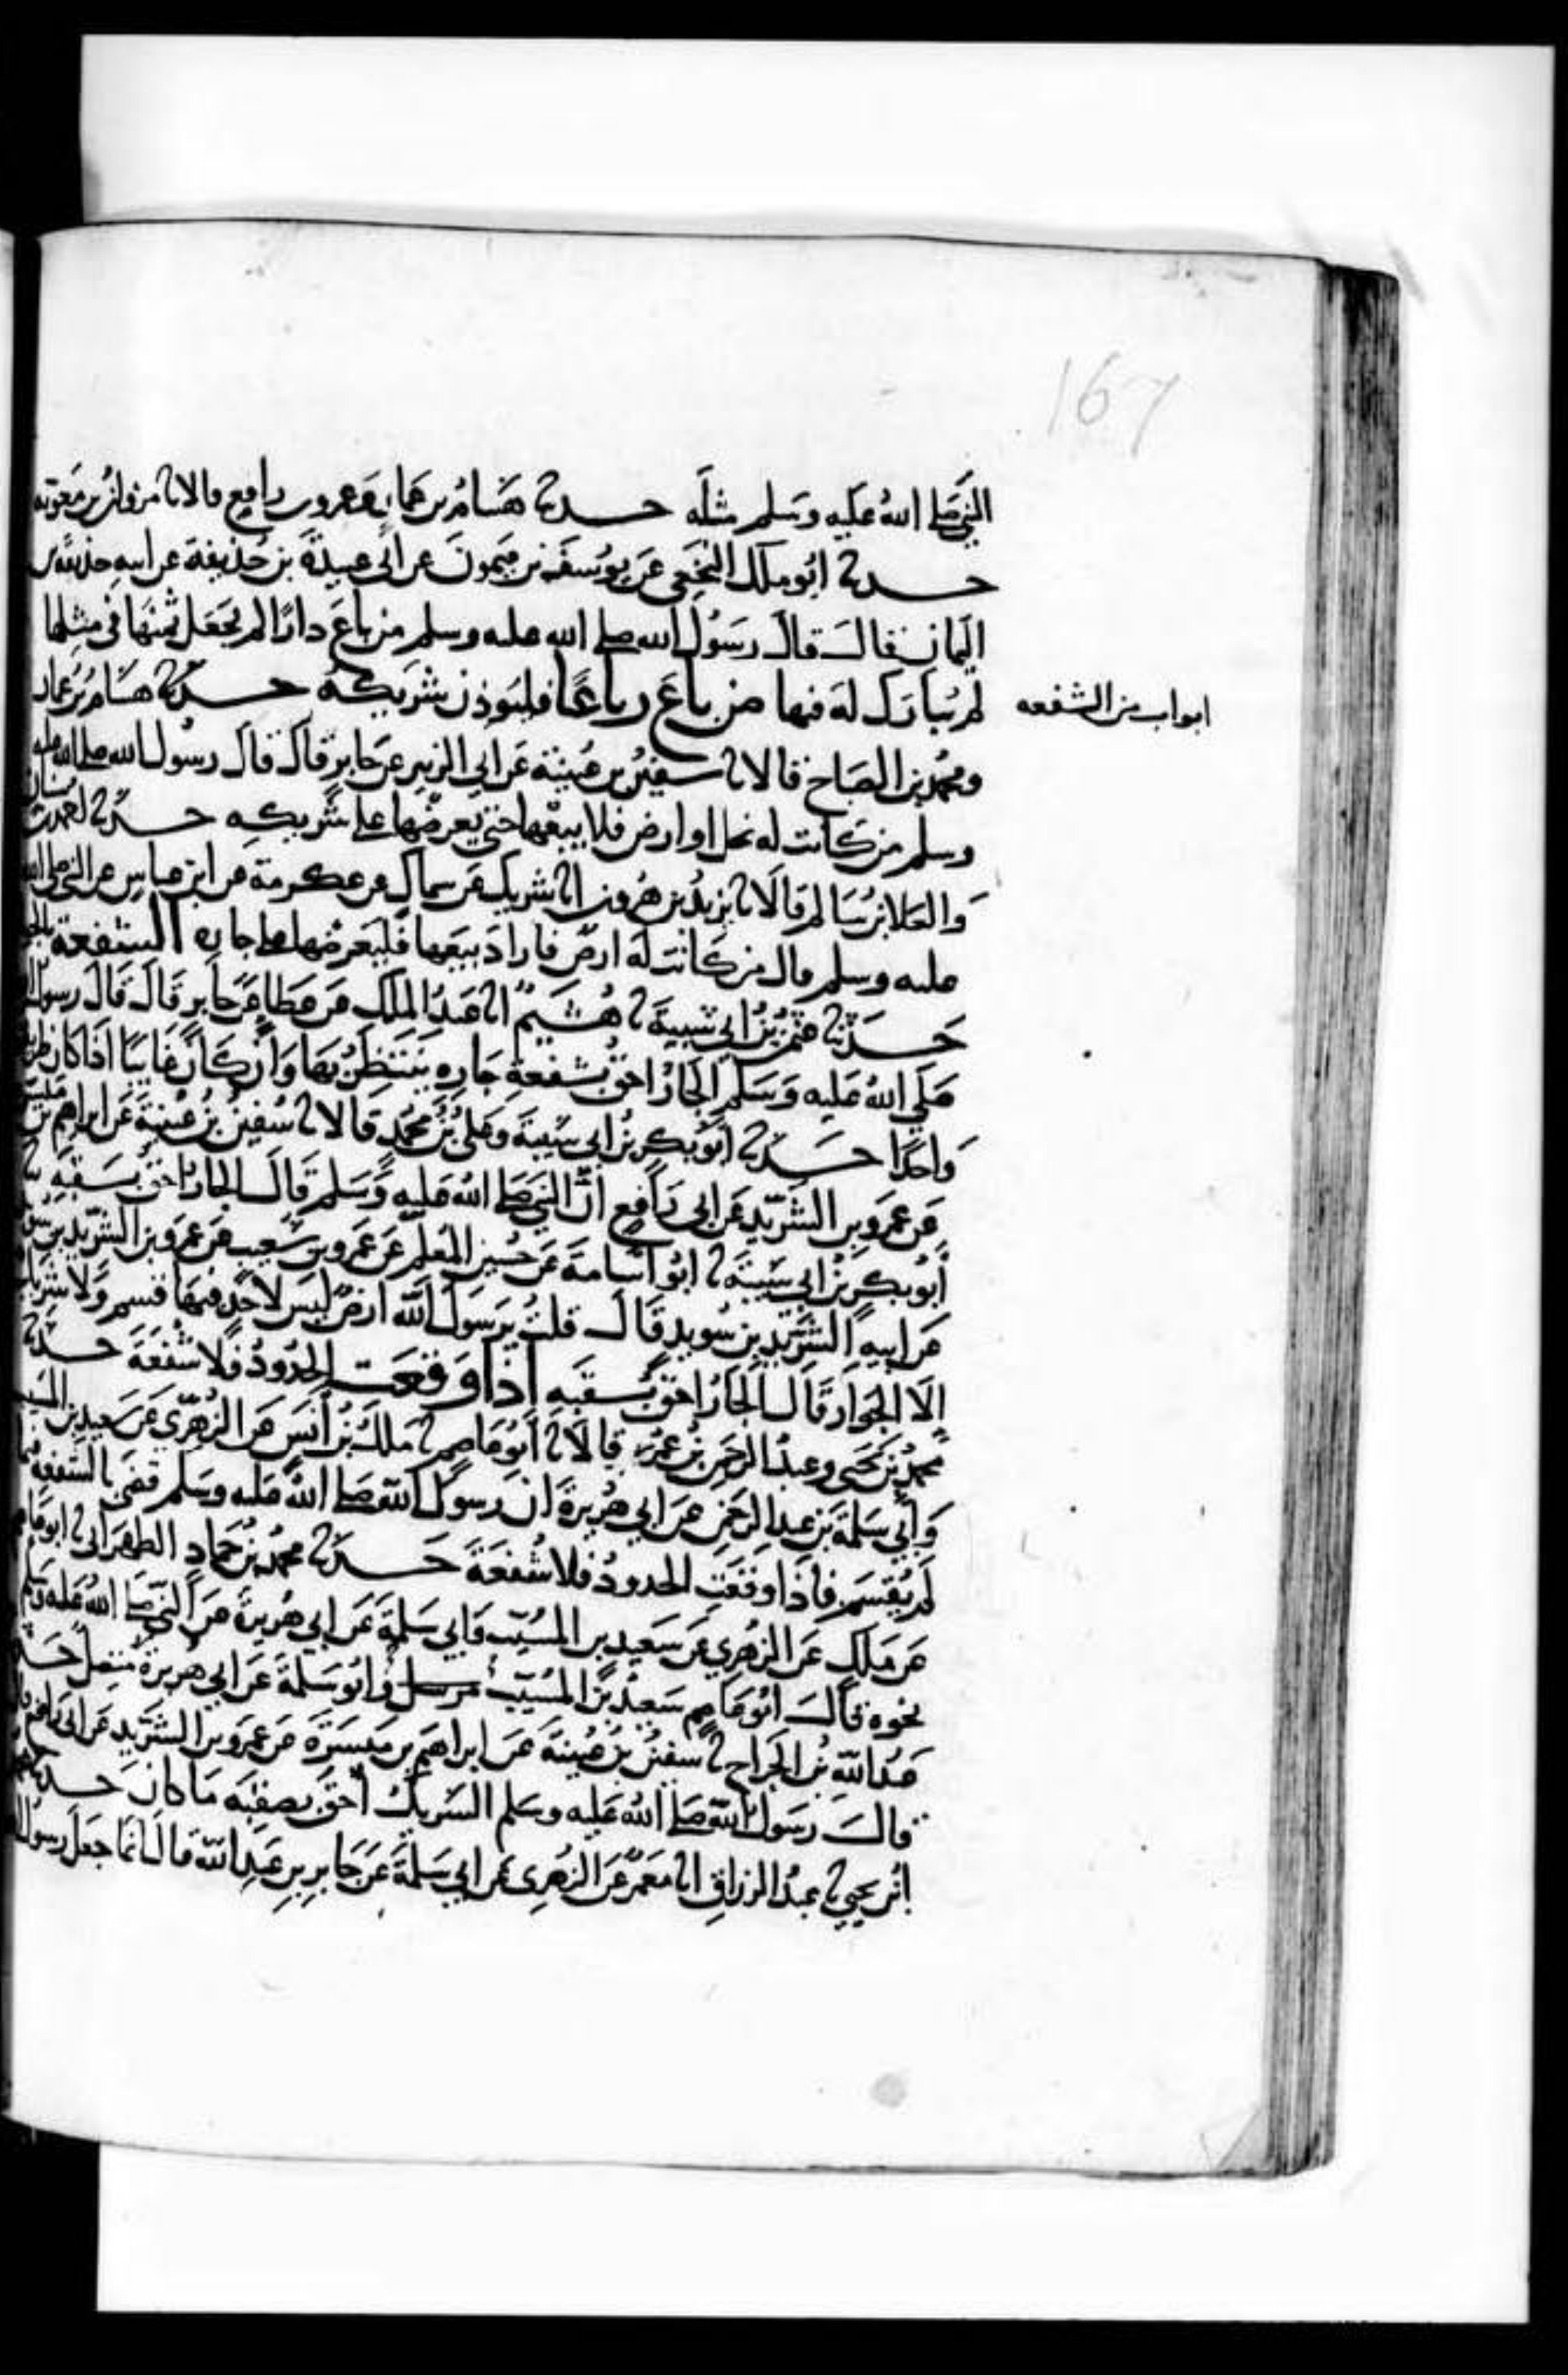 167
النبي صلى الله عليه وسلم مثله حدثنا هشام بن عمار وعمرو بن رافع قالا نا مروان بن معوية
حدثنا ابو ملك النخعي عن يوسف بن ميمون عن ابي عبيدة بن حذيفة عن ابيه حذيفة بن
اليمان قال قال رسول الله صلى الله عليه وسلم من باع دارا لم يجعل ثمنها في مثلها
لم يبارك له فيها من باع رباعا فليوذن شريكه حدثنا هشام بن عمار
ابواب من الشفعه
ومحمد بن الصباح قالا نا سفين بن عيينة عن ابي الزبير عن جابر قال قال رسول الله صلى الله عليه
وسلم من كانت له نخل او ارض فلا يبيعها حتى يعرضها على شريكه حدثنا احمد بن سنان
والعلا بن سالم قالا نا يزيد بن هرون انا شريك عن سماك عن عكرمة عن ابن عباس عن النبي صلى الله
عليه وسلم قال من كانت له ارض فاراد بيعها فليعرضها على جاره الشفعة بالجوار
حدثنا عثمن بن ابي شيبة نا هشيم انا عبد الملك عن عطا عن جابر قال قال رسول الله
صلى الله عليه وسلم الجار احق بشفعة جاره ينتظر بها وان كان غايبا اذا كان طريقهما
واحدا حدثنا ابو بكر بن ابي شيبة وعلي بن محمد قالا نا سفين بن عيينة عن ابراهيم بن ميسرة
عن عمرو بن الشريد عن ابي رافع ان النبي صلى الله عليه وسلم قال الجار احق بسقبه نا
ابو بكر بن ابي شيبة نا ابو اسامة عن حسين المعلم عن عمرو بن شعيب عن عمرو بن الشريد بن سويد
عن ابيه الشريد بن سويد قال قلت يرسول الله ارض ليس لاحد فيها قسم ولا شريك
الا الجوار قال الجار احق بسقبه اذا وقعت الحدود فلا شفعة حدثنا
محمد بن يحيى وعبد الرحمن بن عمر قالا نا ابو عاصم نا ملك بن انس عن الزهري عن سعيد بن المسيب
وابي سلمة بن عبد الرحمن عن ابي هريرة ان رسول الله صلى الله عليه وسلم قضى بالشفعة فيما
لم يقسم فاذا وقعت الحدود فلا شفعة حدثنا محمد بن حماد الطهراني نا ابو عاصم
عن ملك عن الزهري عن سعيد بن المسيب وابي سلمة عن ابي هريرة عن النبي صلى الله عليه وسلم
نحوه قال ابو عاصم سعيد بن المسيب مرسل وابو سلمة عن ابي هريرة متصل حدثنا
عبد الله بن الجراح نا سفين بن عيينة عن ابراهيم بن ميسرة عن عمرو بن الشريد عن ابي رافع قال
قال رسول الله صلى الله عليه وسلم الشريك احق بصقبه ما كان حدثنا محمد
ابن يحيى نا عبد الرزاق انا معمر عن الزهري عن ابي سلمة عن جابر بن عبد الله قال انما جعل رسول الله